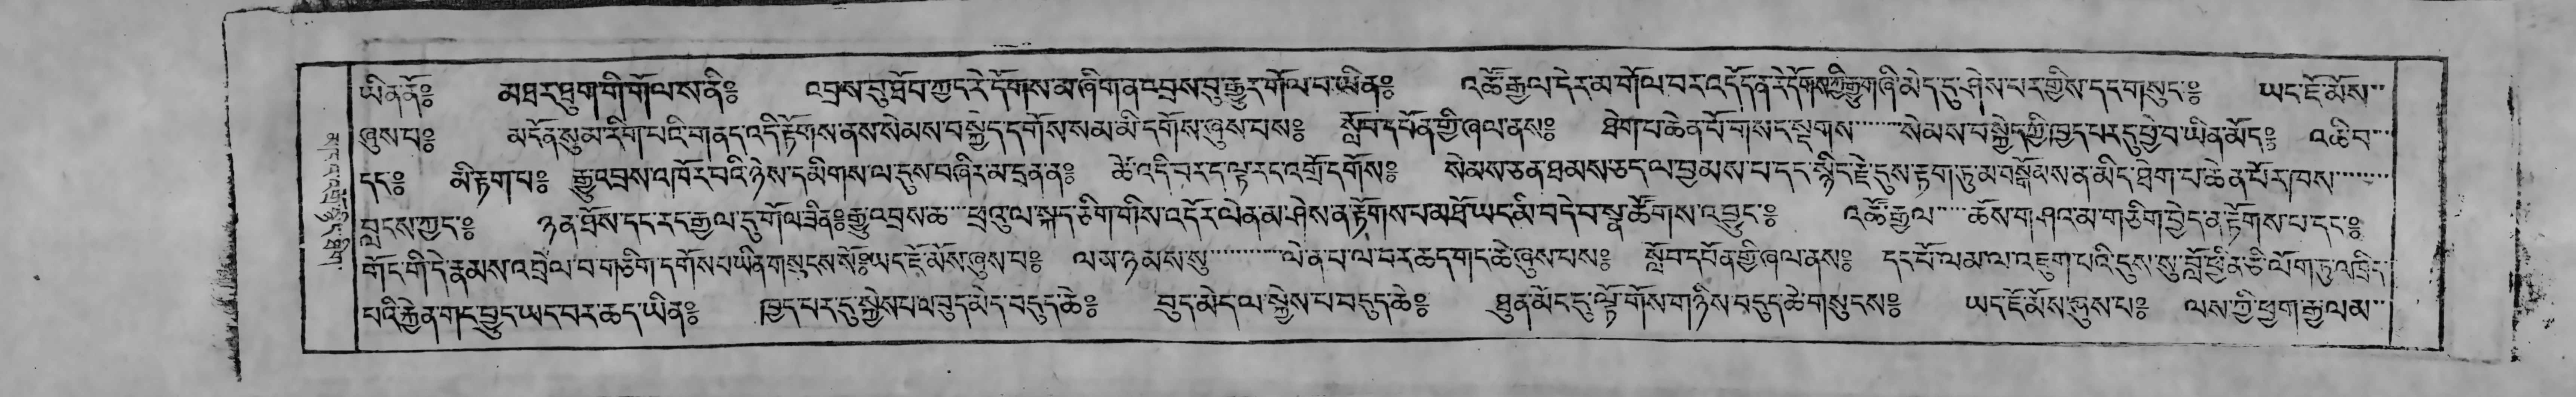 ཡིན་ནོ༔ མཐར་ཐུག་གི་གོལ་ས་ནི༔ འབྲས་བུ་ཐོབ་ཀྱང་རེ་དོགས་མ་ཞིག་ན་འབྲས་བུ་རྒྱུར་གོལ་བ་ཡིན༔ འཚོ་རྒྱལ་དེར་མ་གོལ་བར་འདོད་ན་རེ་དོགས་ཀྱི་རྒྱུ་གཞི་མེད་དུ་ཤེས་པར་གྱིས་དང་གསུང་༔ ཡང་ཇོ་མོས་
ཞུས་པ༔ མདོན་སུམ་རིག་པའི་གནད་འདི་རྟོགས་ནས་སེམས་བསྐྱེད་དགོས་སམ་མི་དགོས་ཞུས་པས༔ སློབ་དཔོན་གྱི་ཞལ་ནས༔ ཐེག་པ་ཆེན་པོ་གསང་སྔགས་སེམས་བསྐྱེད་ཀྱི་ཁྱད་པར་དུ་ཕྱེ་བ་ཡིན་མོད༔ འཆི་བ་
དང༔ མི་རྟག་པ༔ རྒྱུ་འབྲས་འཁོར་བའི་ཉེས་དམིགས་ལ་དུས་བཞིར་མ་དྲན་ན༔ ཚེ་འདི་བར་ད་ལྟ་རང་འགྲོ་དགོས༔ སེམས་ཅན་ཐམས་ཅད་ལ་བྱམས་པ་དང་སྙིང་རྗེ་དུས་རྟག་ཏུ་མ་བསྒོམས་ན་མིང་ཐེག་པ་ཆེན་པོར་ཁས་
བླངས་ཀྱང་༔ ཉན་ཐོས་དང་རང་རྒྱལ་དུ་གོལ་ཟིན༔ རྒྱུ་འབྲས་ཆ་ཕྲའུ་ལ་སྐད་ཅིག་གིས་འདོར་ལེན་མ་ཤེས་ན་རྟོགས་པ་མཐོ་ཡང་མི་བདེ་བ་སྣ་ཚོགས་འབྱུང་༔ འཚོ་རྒྱལ་ཆོས་ག་ཤའ་མ་གཅིག་བྱེད་ན་རྟོགས་པ་དང་༔
གོང་གི་དེ་རྣམས་འབྲེལ་བ་གཅིག་དགོས་པ་ཡིན་གསུངས་སོ༔ ཡང་ཇོ་མོས་ཞུས་པ༔ ལམ་ཉམས་སུ་ལེན་པ་ལ་བར་ཆད་གང་ཆེ་ཞུས་པས༔ སློབ་དཔོན་གྱི་ཞལ་ནས༔ དང་པོ་ལམ་ལ་འཇུག་པའི་དུས་སུ་བློ་ཕྱིན་ཅི་ལོག་ཏུ་འཁྲིད་
པའི་རྐྱེན་གང་བྱུང་ཡང་བར་ཆད་ཡིན༔ ཁྱད་པར་དུ་སྐྱེས་པ་ལ་བུད་མེད་བདུད་ཆེ༔ བུད་མེད་ལ་སྐྱེས་པ་བདུད་ཆེ༔ ཐུན་མོང་དུ་ལྟོ་གོས་གཉིས་བདུད་ཆེ་གསུངས༔ ཡང་ཇོ་མོས་ཞུས་པ༔ ལས་ཀྱི་ཕྱག་རྒྱ་ལམ་